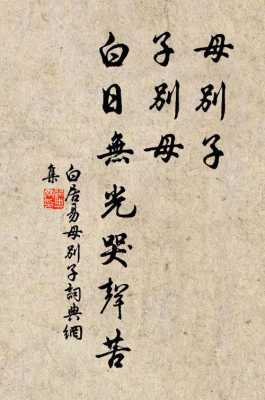 母別子
子別母
白日無光哭聲苦
白居易母別子詞典網
集